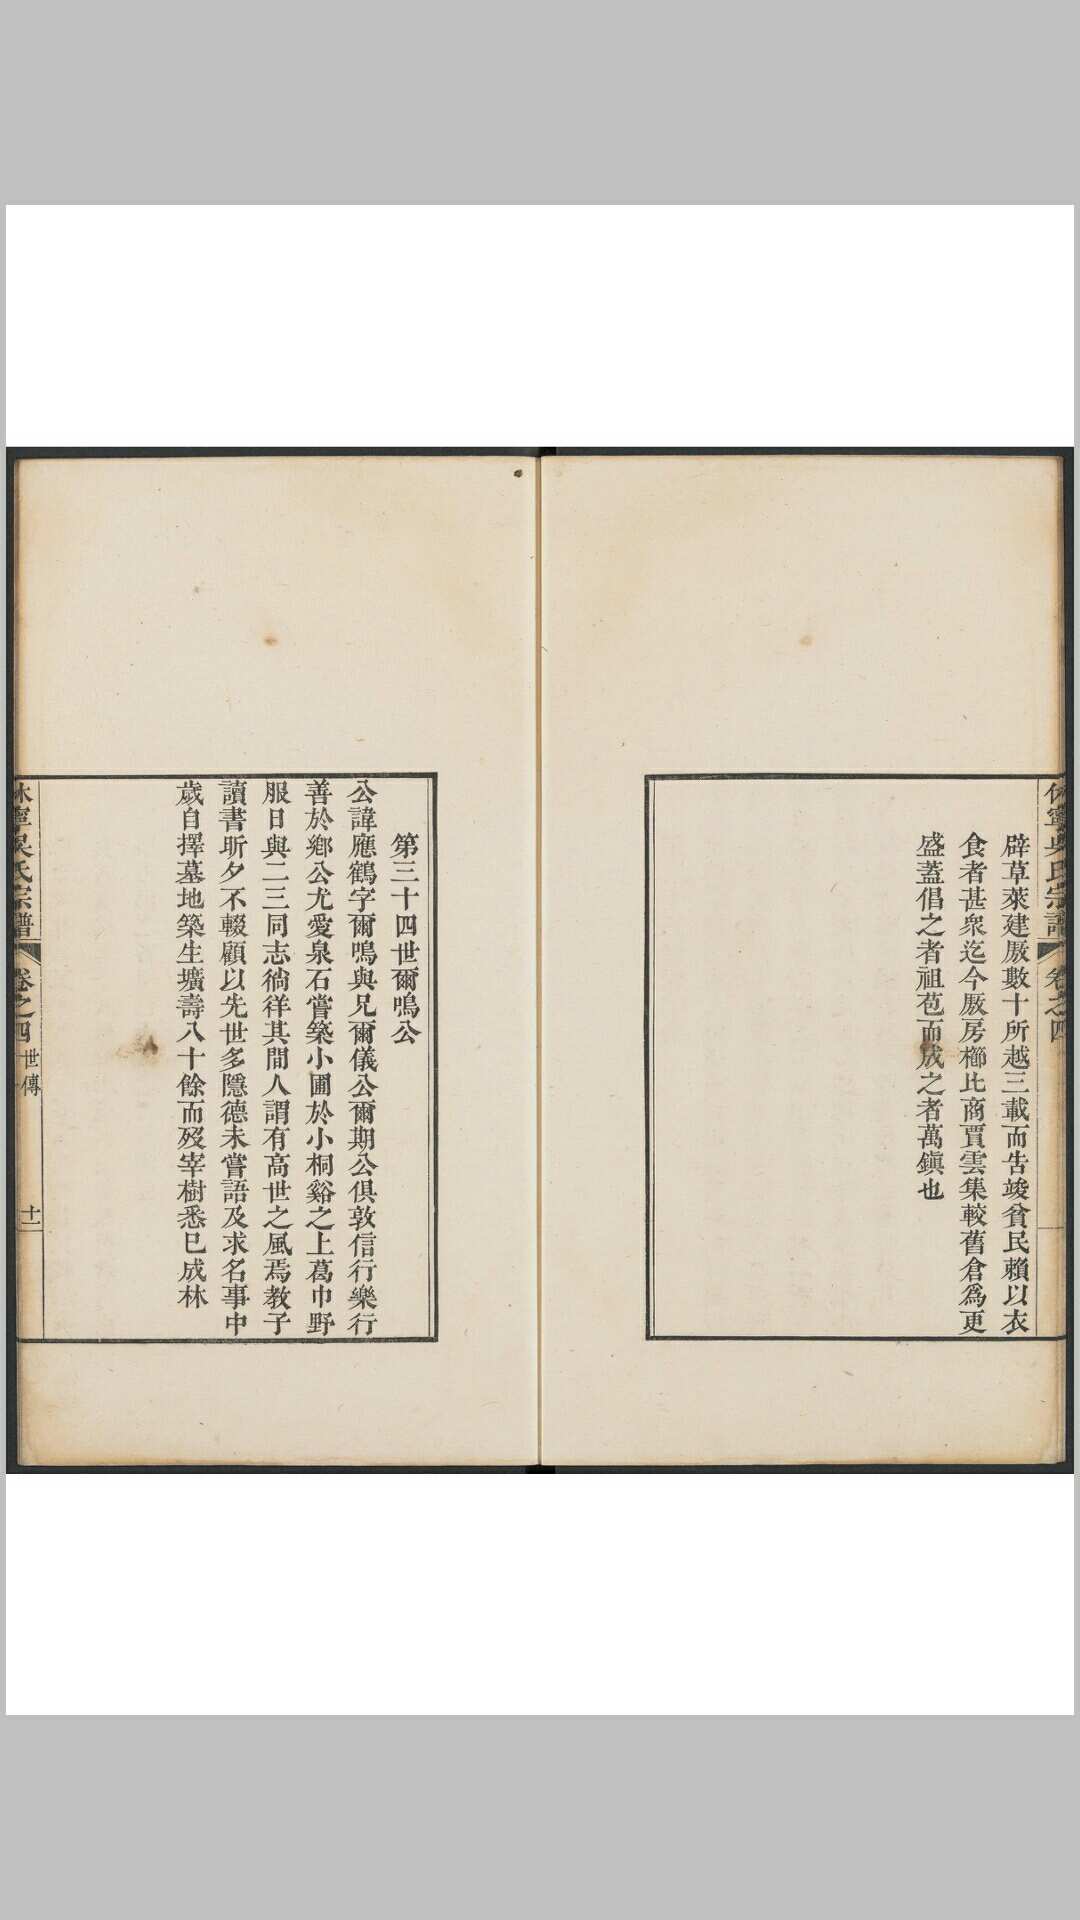 休寧吳氏宗譜 卷之四
辟草萊建厫數十所越三載而告竣貧民賴以衣
食者甚衆迄今厫房櫛比商賈雲集較舊倉爲更
盛蓋倡之者祖苞而成之者萬鎭也
第三十四世爾鳴公
公諱應鶴字爾鳴與兄爾儀公爾期公俱敦信行樂行
善於鄉公尤愛泉石嘗築小圃於小桐谿之上葛巾野
服日與二三同志徜徉其間人謂有高世之風焉教子
讀書昕夕不輟顧以先世多隱德未嘗語及求名事中
歲自擇墓地築生壙壽八十餘而歿宰樹悉已成林
休寧吳氏宗譜 卷之四 世傳 十一